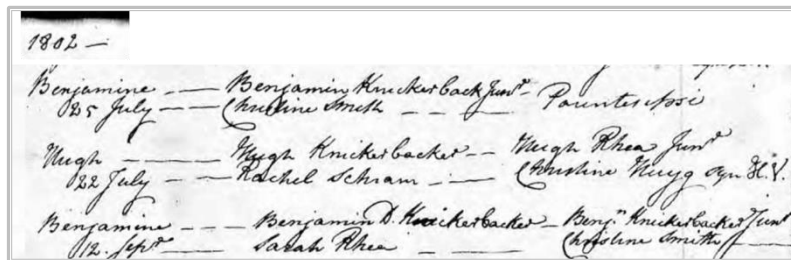 1802 —
Benjamine — — Benjamin Knickerback Junr — Parentes ipsi
25 July — — Christine Smith — — —
Hugh — — — Hugh Knickerbacker — — Hugh Rhea Junr
22 July — — Rachel Schram — — Christine
Benjamine — — — Benjamin D. Knickerbacker — Benjn Knickerbacker Junr
12. Sepr — — Sarah Rhea — — Christine Smith —